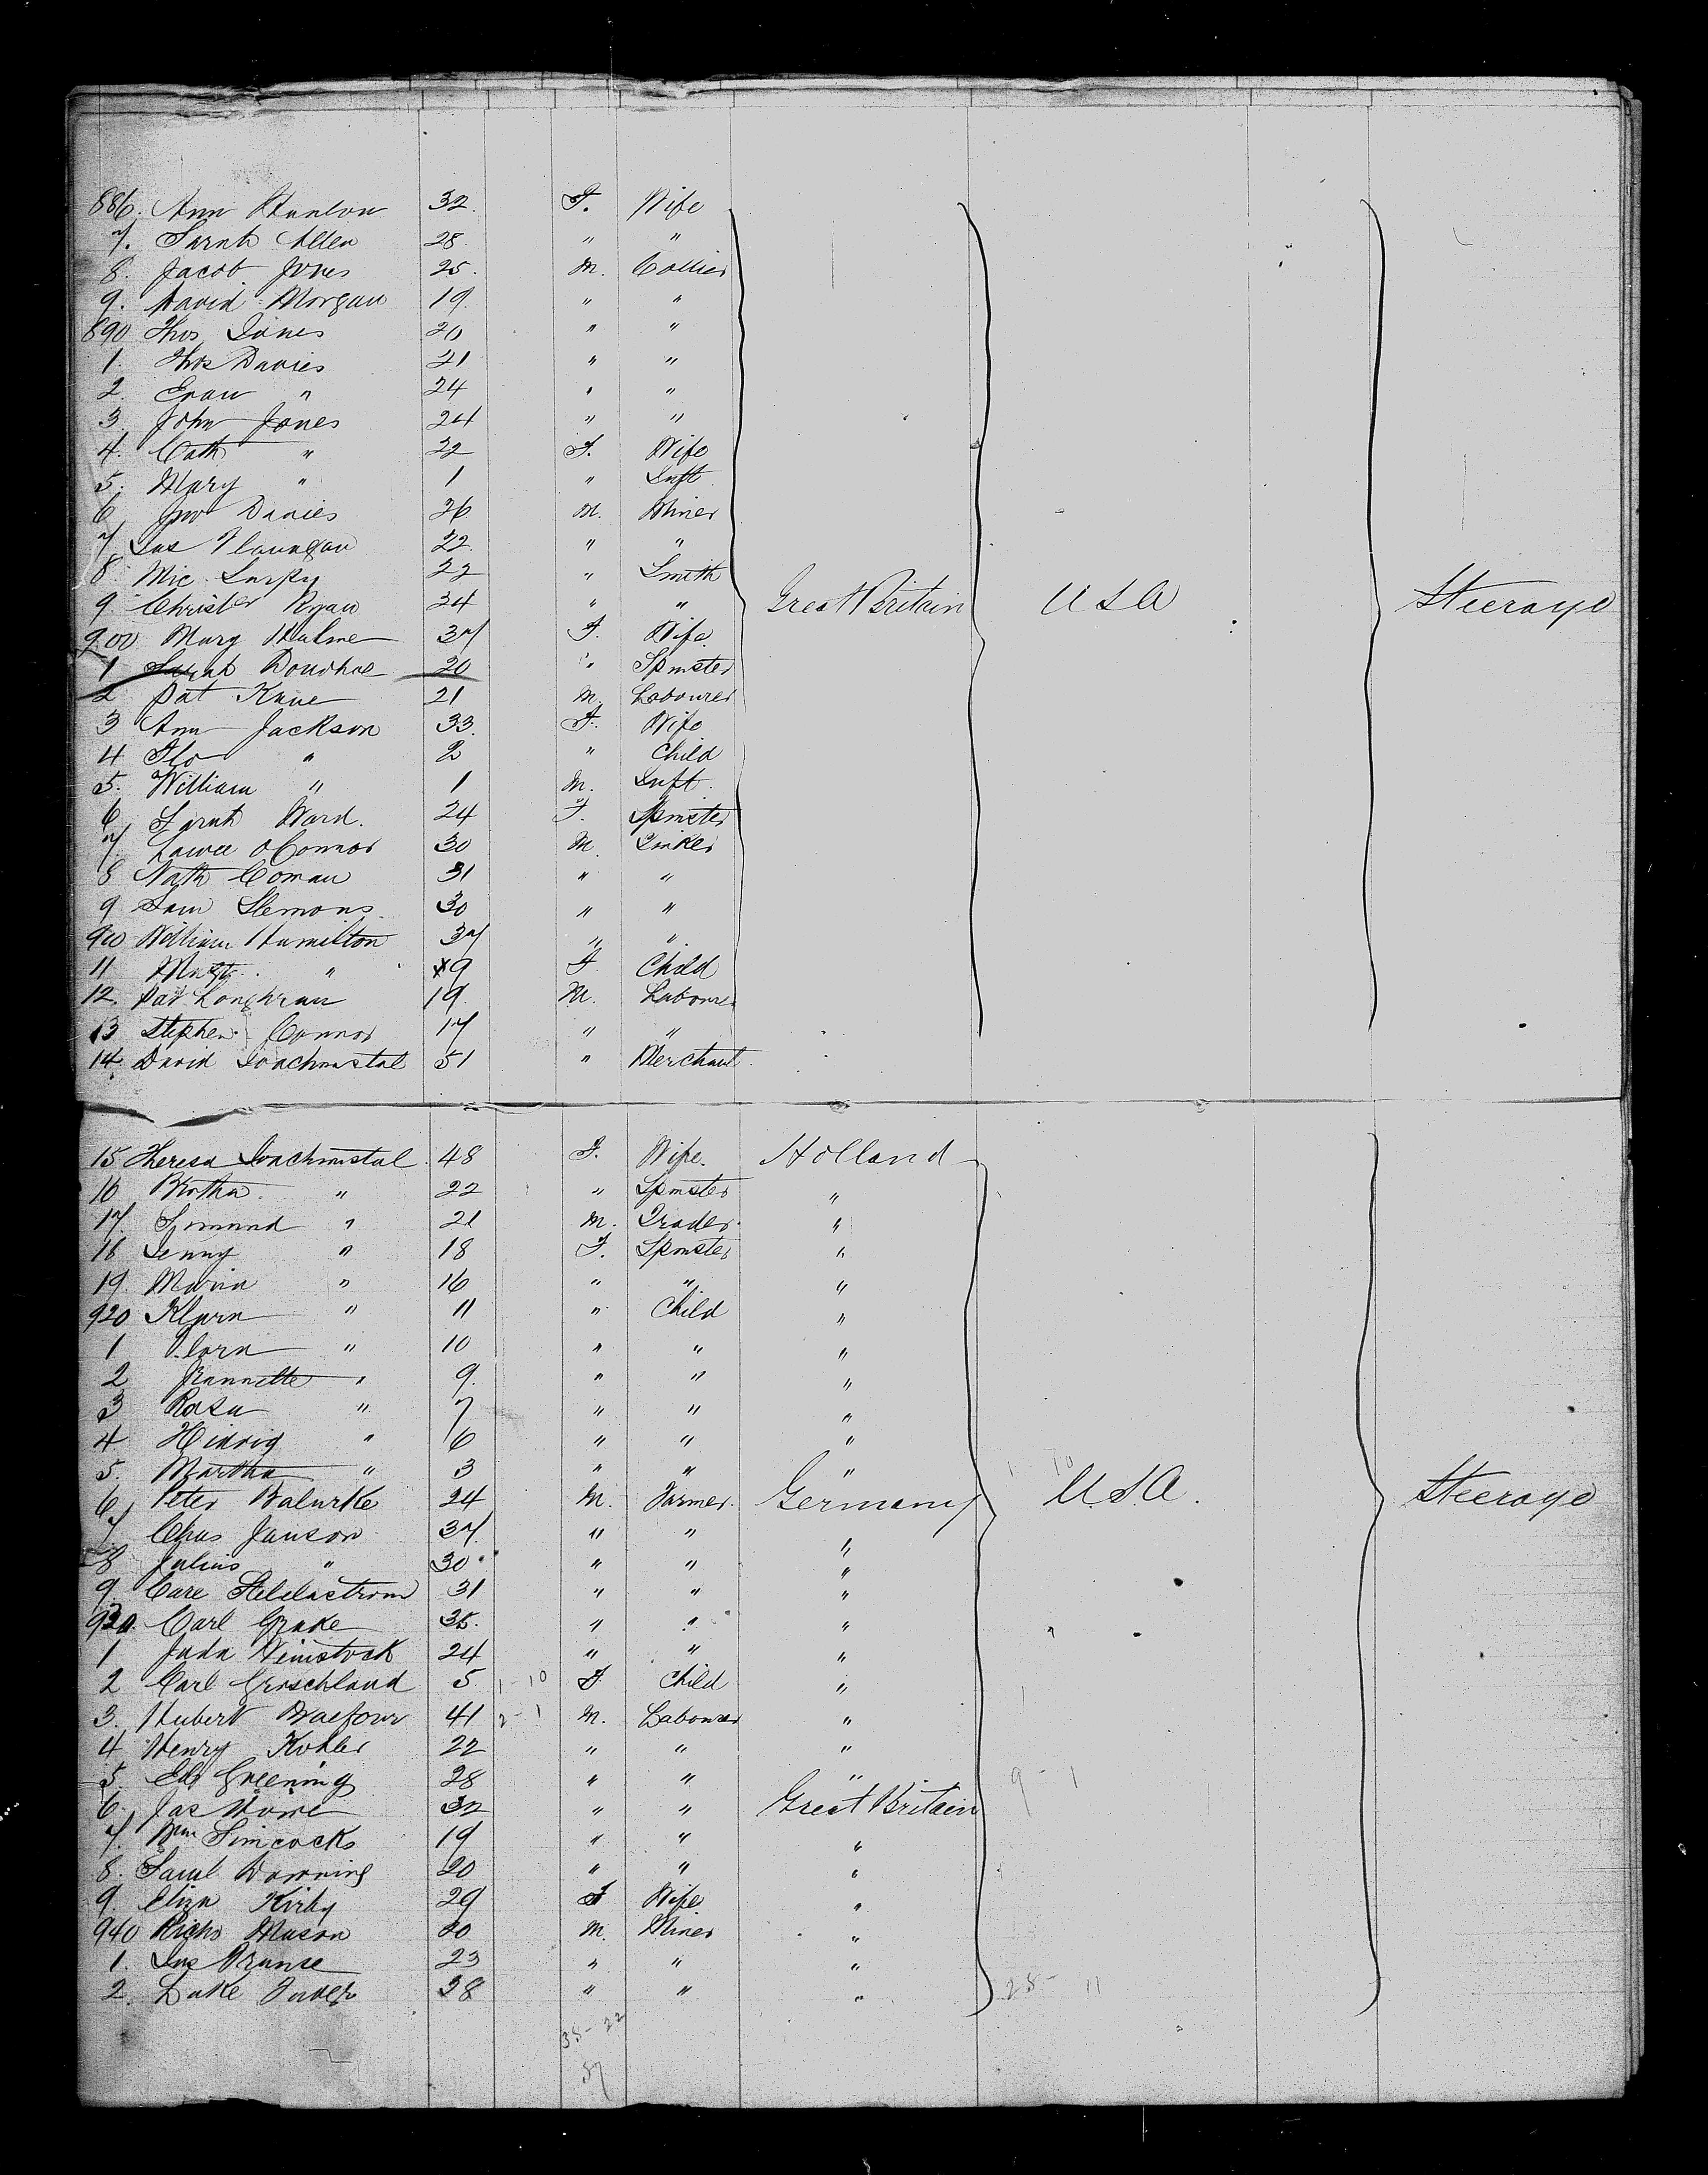 886. Ann Hanlon 32. F. Wife
7. Sarah Allen 28. " "
8. Jacob Jones 25. M. Collier
9. David Morgan 19. " "
890 Thos Jones 20 " "
1. Thos Davies 21 " "
2. Evan " 24 " "
3. John Jones 24 " "
4. Cath " 22 F. Wife
5. Mary " 1 " Inft
6 Jno Davies 26 M. Miner
7 Jas Flannagan 22. " "
8. Mic 22 " Smith
9. Christr Ryan 34 " " Great Britain USA Steerage
900 Mary Hulme 37 F. Wife.
1 Sarah Donohoe 20 " Spinster
2 Pat Kane 21 M. Labourer
3 Ann Jackson 33. F. Wife
4 Flo " 2 " Child
5. William " 1 M. Inft.
6 Sarah Ward. 24 F. Spinster
7. O'Connor 30 M. Tinker
8 Nath Coman 31 " "
9 Sam Slemons 30 " "
910 William Hamilton 37 " "
11 Magt. " 9 F Child
12. Pat Loughran 19. M. Labourer
13 Stephen Connor 17 " "
14. David Joachimstal 51 " Merchant.
15 Theresa Joachimstal. 48 F. Wife. Holland
16 Bertha. " 22 " Spinster "
17. Simund " 21 M. Trader. "
18 Jenny " 18 F. Spinster "
19. Maria " 16 " " "
920 Klara " 11 " Child "
1 Flora " 10 " " "
2 Jeannette " 9. " " "
3 Rosa " 7 " " "
4 Hidrig " 6 " " "
5. Martha " 3 " " "
6 Peter Balurke 24 M. Farmer. Germany USA. Steerage
7 Chas Janson 37. " " "
8 Julius " 30 " " "
9. Care 31 " " "
930. Carl Grake 35. " " "
1 Juda Weinstock 24 " " "
2 Carl Groschland 5 1-10 F. Child "
3. Hubert Balfour 41 2-1 M. Labourer "
4 Henry Kohler 22 " " "
5. Ed Greening 28 " " " 9-1
6. Jas Howe 32 " " Great Britain
7. Wm Simcocks 19 " " "
8. Saml Downing 20 " " "
9. Eliza Kirby 29 F Wife "
940 Richd Mason 20 M. Miner "
1. Jas 23 " " "
2. Luke 38 " " " 28-11
35-22
57